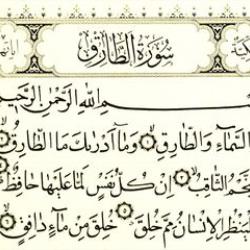 سُورَةُ الطَّارِقِ
بِسْمِ اللهِ الرَّحْمٰنِ الرَّحِيمِ
السَّمَاءِ وَالطَّارِقِ ۝ وَمَا أَدْرٰيكَ مَا الطَّارِقُ ۝
الثَّاقِبُ ۝ إِنْ كُلُّ نَفْسٍ لَمَّا عَلَيْهَا حَافِظٌ ۝
يَنْظُرِ الْإِنْسَانُ مِمَّ خُلِقَ ۝ خُلِقَ مِنْ مَاءٍ دَافِقٍ ۝